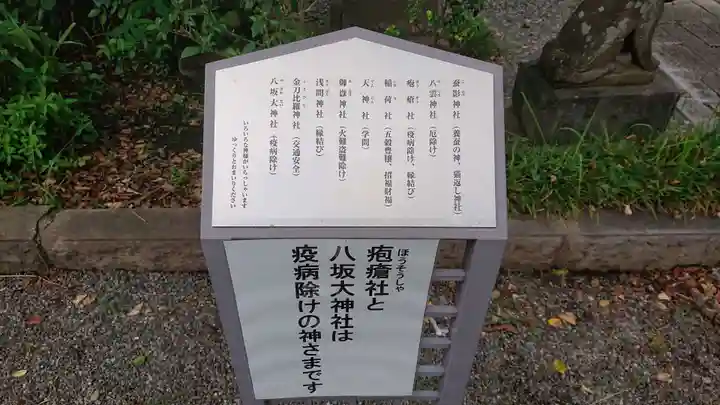 蚕影神社（養蚕の神、猫返し神社）
八雲神社（厄除け）
疱瘡社（疫病除け、縁結び）
稲荷社（五穀豊穣、招福財福）
天神社（学問）
御嶽神社（火難盗難除け）
浅間神社（縁結び）
金刀比羅神社（交通安全）
八坂大神社（疫病除け）
いろいろな神様がいらっしゃいます
ゆっくりとおまいりください
ほうそうしゃ
疱瘡社と
八坂大神社は
疫病除けの神さまです